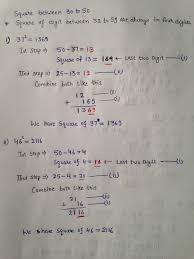 Square between 30 to 50
* Square of digit between 32 to 99 the change in four digits
1) 37² = 1369
Ist step ⟹ 50-37 = 13
Square of 13 = 169 ← Last two Digit —(i)
IInd step ⟹ 25-13 = 12 —(ii)
Combine both like this
12 —(ii)
+ 169 —(i)
1369
We have Square of 37² = 1369
2) 46² = 2116
Ist step ⟹ 50-46 = 4
Square of 4 = 16 ← Last two Digit —(i)
IInd step ⟹ 25-4 = 21 —(ii)
Combine both like this
21 —(ii)
+ 16 —(i)
2116
We have Square of 46 = 2116